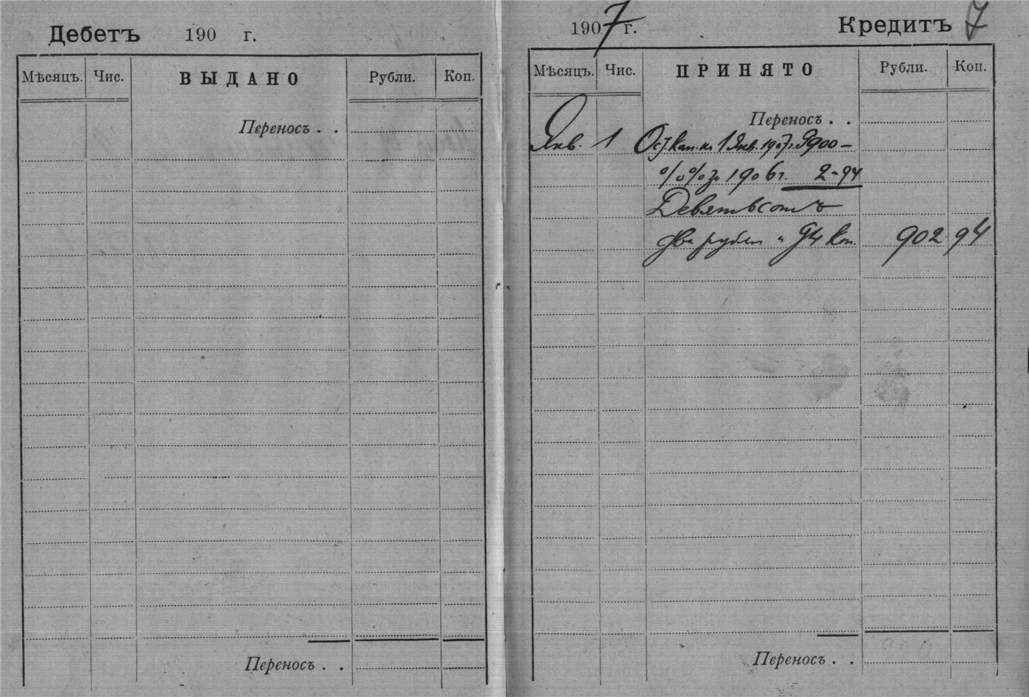 Дебетъ 190 г.
Мѣсяцъ. Чис. ВЫДАНО Рубли. Коп.
Переносъ . .
Переносъ . .
1907 г. Кредитъ 7
Мѣсяцъ. Чис. ПРИНЯТО Рубли. Коп.
Переносъ . .
Янв. 1 Ост. кап. къ 1 Янв. 1907 г. 900 –
%% за 1906 г. 2-94
Девятьсотъ
два рубля и 94 коп. 902 94
Переносъ . .